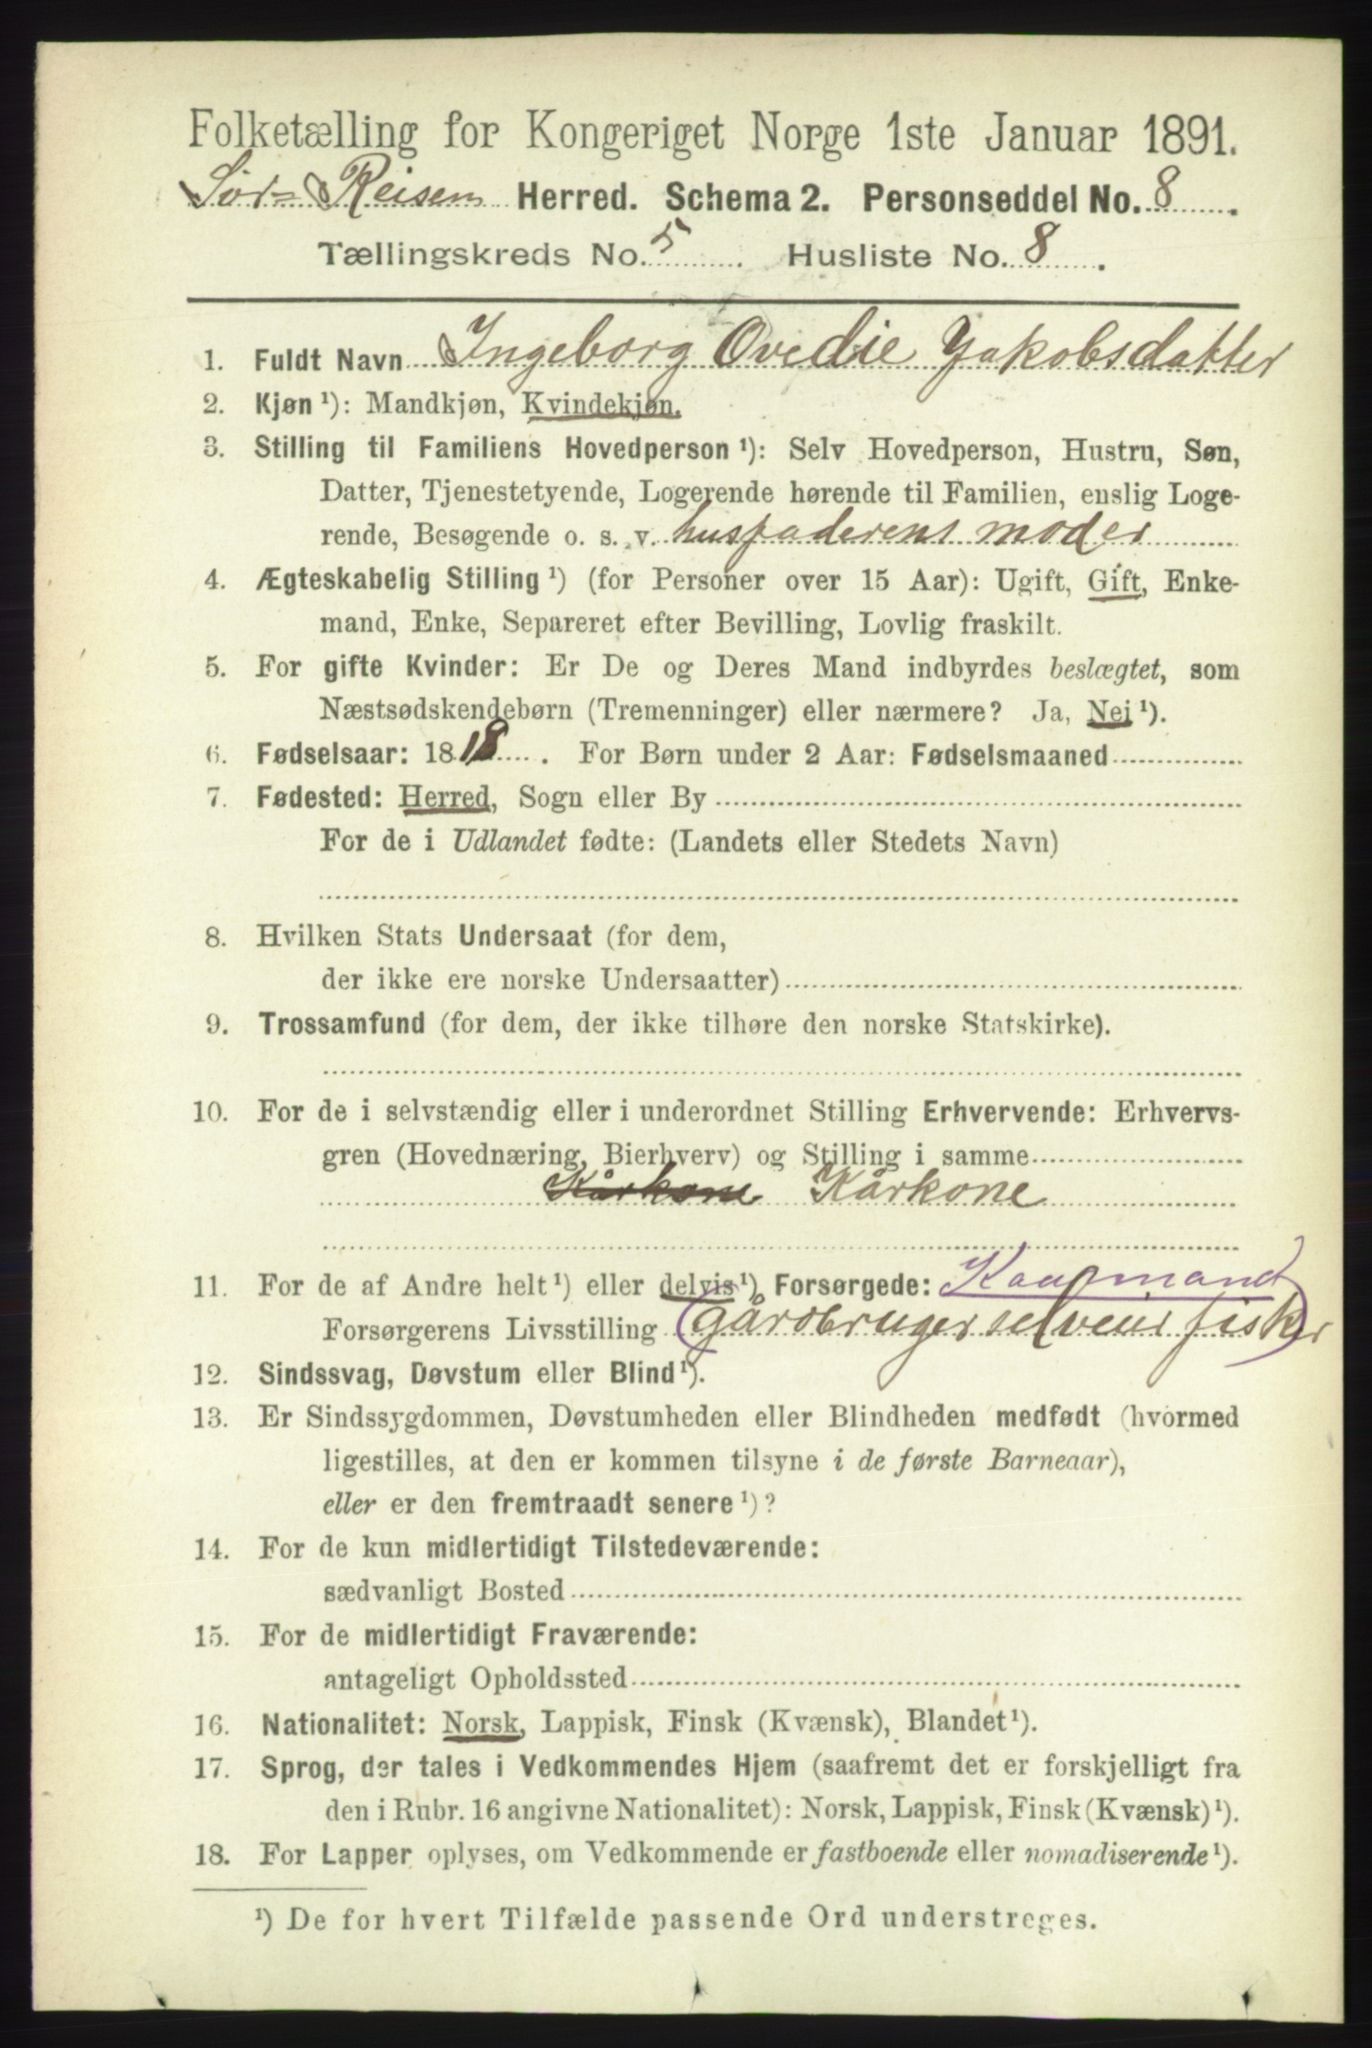 Folketælling for Kongeriget Norge 1ste Januar 1891.
Sør-Reisen Herred. Schema 2. Personseddel No. 8.
Tællingskreds No. 5. Husliste No. 8.
1. Fuldt Navn Ingeborg Ovedie Jakobsdatter
2. Kjøn ¹): Mandkjøn, Kvindekjøn.
3. Stilling til Familiens Hovedperson ¹): Selv Hovedperson, Hustru, Søn,
Datter, Tjenestetyende, Logerende hørende til Familien, enslig Loge-
rende, Besøgende o. s. v. husfaderens moder
4. Ægteskabelig Stilling ¹) (for Personer over 15 Aar): Ugift, Gift, Enke-
mand, Enke, Separeret efter Bevilling, Lovlig fraskilt.
5. For gifte Kvinder: Er De og Deres Mand indbyrdes beslægtet, som
Næstsødskendebørn (Tremenninger) eller nærmere? Ja, Nej ¹).
6. Fødselsaar: 1818. For Børn under 2 Aar: Fødselsmaaned
7. Fødested: Herred, Sogn eller By
For de i Udlandet fødte: (Landets eller Stedets Navn)
8. Hvilken Stats Undersaat (for dem,
der ikke ere norske Undersaatter)
9. Trossamfund (for dem, der ikke tilhøre den norske Statskirke).
10. For de i selvstændig eller i underordnet Stilling Erhvervende: Erhvervs-
gren (Hovednæring, Bierhverv) og Stilling i samme
Kårkone Kårkone
11. For de af Andre helt ¹) eller delvis ¹) Forsørgede: Kaarmand
Forsørgerens Livsstilling (gårdbruger selveier fisker)
12. Sindssvag, Døvstum eller Blind ¹).
13. Er Sindssygdommen, Døvstumheden eller Blindheden medfødt (hvormed
ligestilles, at den er kommen tilsyne i de første Barneaar),
eller er den fremtraadt senere ¹)?
14. For de kun midlertidigt Tilstedeværende:
sædvanligt Bosted
15. For de midlertidigt Fraværende:
antageligt Opholdssted
16. Nationalitet: Norsk, Lappisk, Finsk (Kvænsk), Blandet ¹).
17. Sprog, der tales i Vedkommendes Hjem (saafremt det er forskjelligt fra
den i Rubr. 16 angivne Nationalitet): Norsk, Lappisk, Finsk (Kvænsk) ¹).
18. For Lapper oplyses, om Vedkommende er fastboende eller nomadiserende ¹).
¹) De for hvert Tilfælde passende Ord understreges.